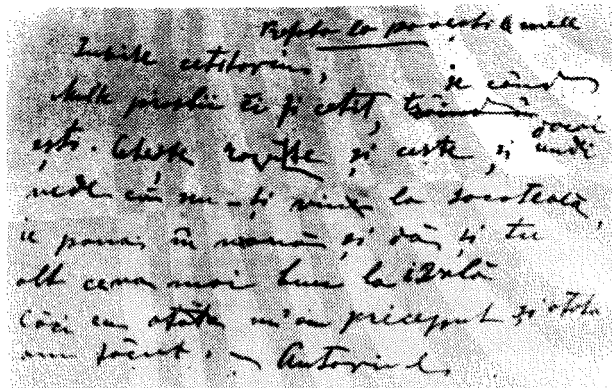 Prefața la poveștile mele
Iubite cetitoriu,
Multe prostii ăi fi cetit, de când
ești. Cetește rogu-te și ceste, și unde
vede că nu-ți vin la socoteală,
ie pana în mână și dă și tu
alt ceva mai bun la ivală
căci eu atâta m'am priceput și atâta
am făcut. — Autoriul,